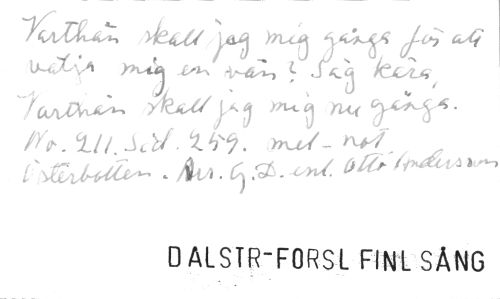 Varthän skall jag mig gånga för att
välja mig en vän? Säg kära,
Varthän skall jag mig nu gånga.
No. 211. Sid. 259. mel-not
Österbotten. Arr. G. D. enl. Otto Andersson
DALSTR-FORSL FINL SÅNG